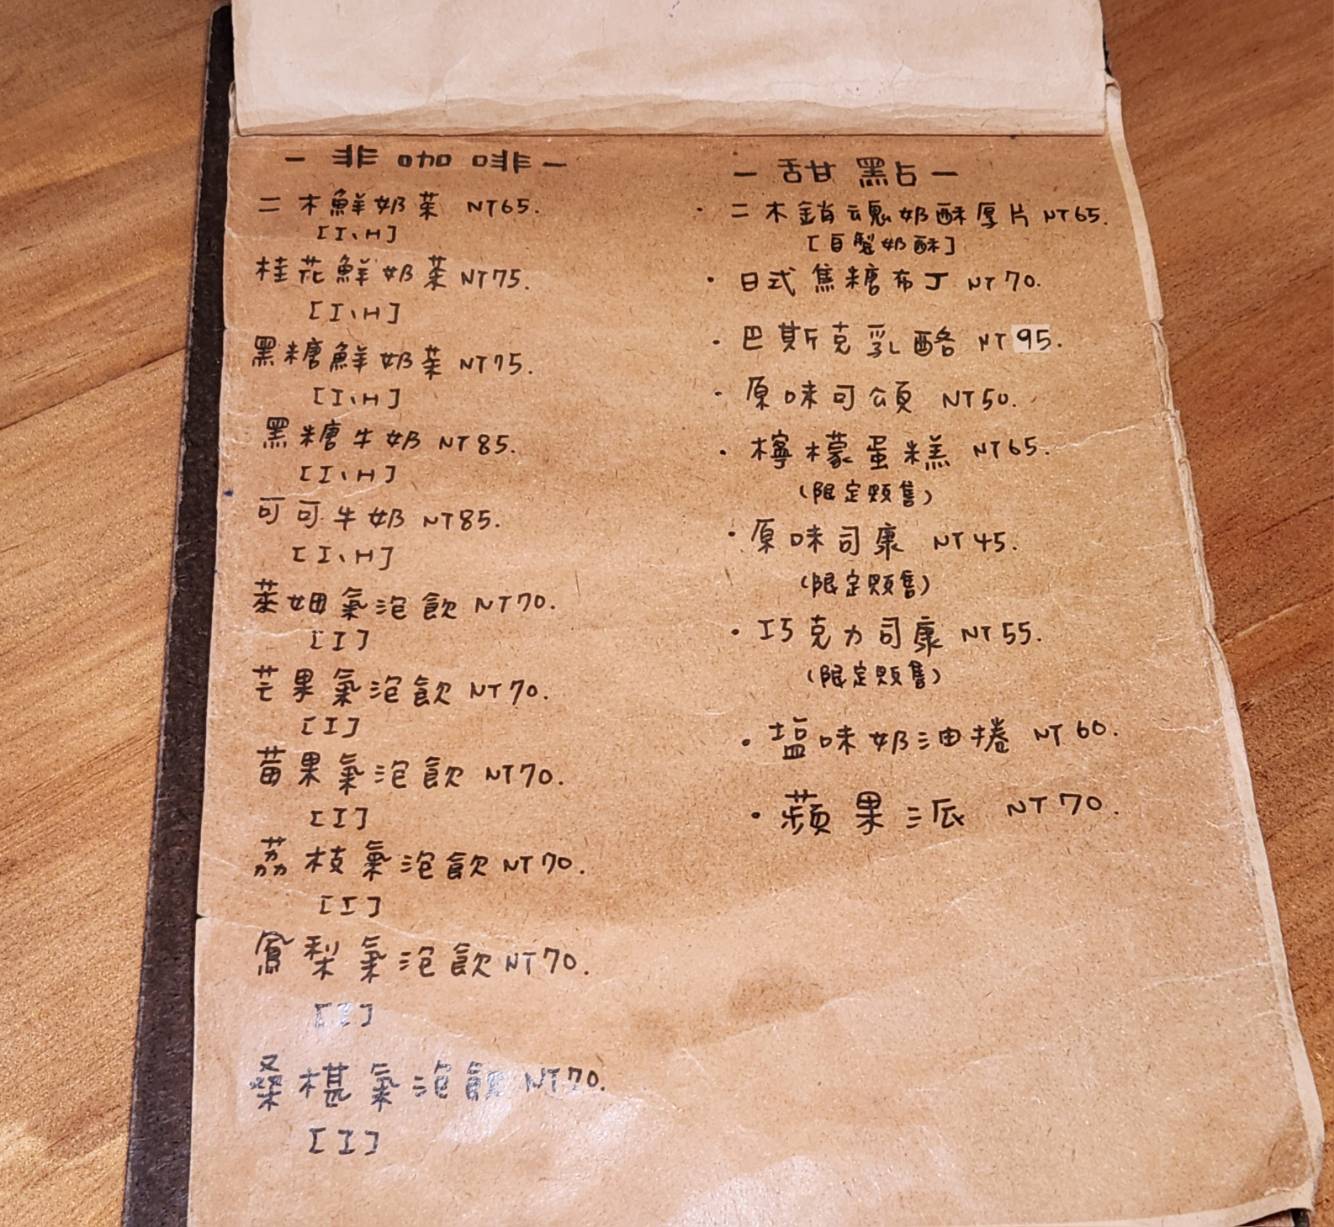 －非咖啡－
二木鮮奶茶 NT65.
[I、H]
桂花鮮奶茶 NT75.
[I、H]
黑糖鮮奶茶 NT75.
[I、H]
黑糖牛奶 NT85.
[I、H]
可可牛奶 NT85.
[I、H]
萊姆氣泡飲 NT70.
[I]
芒果氣泡飲 NT70.
[I]
莓果氣泡飲 NT70.
[I]
荔枝氣泡飲 NT70.
[I]
鳳梨氣泡飲 NT70.
[I]
桑椹氣泡飲 NT70.
[I]
－甜點－
·二木銷魂奶酥厚片 NT65.
[自製奶酥]
·日式焦糖布丁 NT70.
·巴斯克乳酪 NT95.
·原味可頌 NT50.
·檸檬蛋糕 NT65.
(限定販售)
·原味司康 NT45.
(限定販售)
·巧克力司康 NT55.
(限定販售)
·塩味奶油捲 NT60.
·蘋果派 NT70.